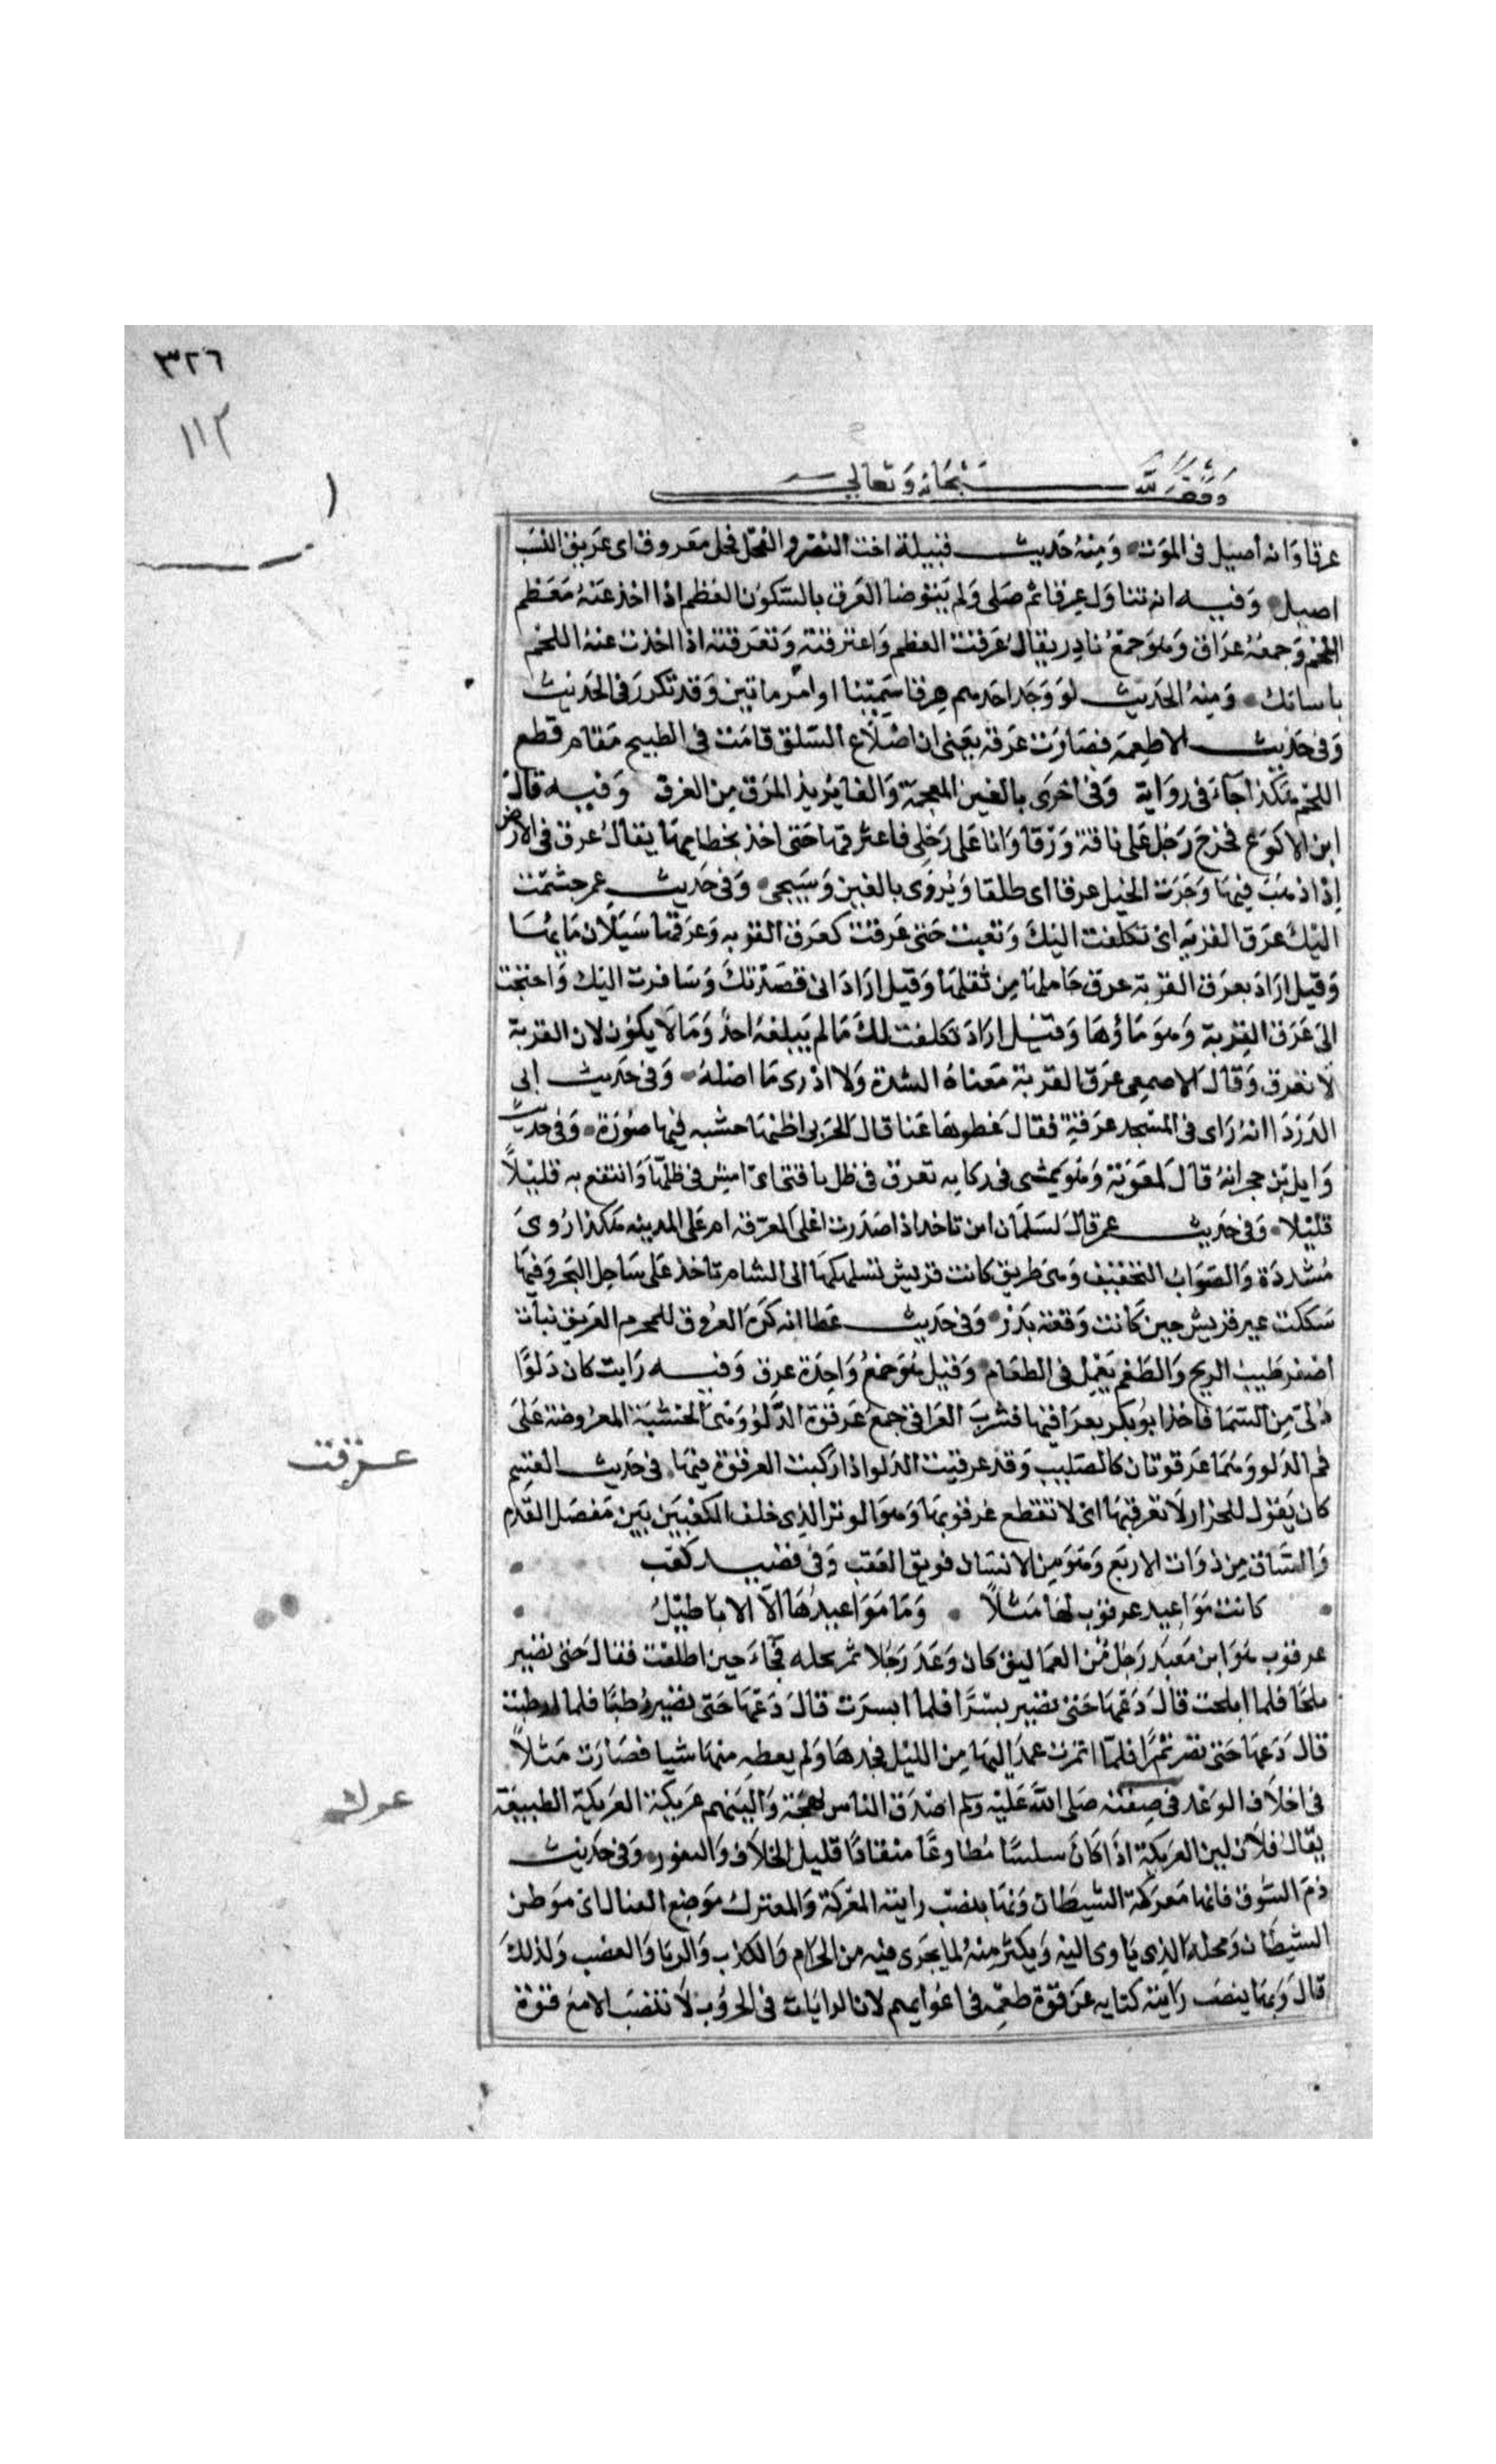 ٣٢٦
١١٢
وقف لله سبحانه وتعالى
عرقا وانه اصيل فى الموت ومنه حديث قتيلة اخت النضر والفحل فحل معروق اى عريق النسب
اصيل وفيه انه تناول عرقا ثم صلى ولم يتوضا العرق بالسكون العظم اذا اخذ عنه معظم
اللحم وجمعه عراق وهو جمع نادر يقال عرقت العظم واعترقته وتعرقته اذا اخذت عنه اللحم
باسنانك ومنه الحديث لو وجد احدهم عرقا سمينا او امرماتين وقد تكرر فى الحديث
وفى حديث الاطعمة فصارت عرقه يعنى ان اضلاع السلق قامت فى الطبيح مقام قطع
اللحم هكذا جآء فى رواية وفى اخرى بالغين المعجمة والفا يريد المرق من الغرق وفيه قال
ابن الاكوع فخرج رجل على ناقة ورقا وانا على رجلى فاعترقها حتى اخذ بخطامها يقال عرق فى الارض
اذا ذهب فيها وجرت الخيل عرقا اى طلقا ويروى بالغين وسيجى وفى حديث عمر جشمت
اليك عرق القربه اى تكلفت اليك وتعبت حتى عرقت كعرق القربه وعرقها سيلان مايها
وقيل اراد بعرق القربة عرق حاملها من ثقلها وقيل اراد انى قصدتك وسافرت اليك واحتجت
الى عرق القربة وهو ماؤها وقيل اراد تكلفت لك ما لم يبلغه احد وما لا يكون لان القربة
لا تعرق وقال الاصمعى عرق القربة معناه الشدة ولا ادرى ما اصله وفى حديث ابى
الدردا انه راى فى المسجد عرقة فقال غطوها عنا قال الحربى اظنها خشبه فيها صورة وفى حديث
وايل بن حجر انه قال لمعوية وهو يمشى فى ركابه تعرق فى ظل ناقتى اى امش فى ظلها وانتفع به قليلاً
قليلا وفى حديث عمر قال لسلمان اين تاخد اذا صدرت اعلى المعرقه ام على المدينه هكذا روى
مشددة والصواب التخفيف وهى طريق كانت قريش تسلكها الى الشام تاخذ على ساحل البحر وفيها
سلكت عير قريش حين كانت وقعة بدر وفى حديث عطا انه كره العروق للمحرم العروق نبات
اصفر طيب الريح والطعم يعمل فى الطعام وقيل هو جمع واحدة عرق وفيه رايت كان دلوا
دلى من السما فاخذ ابو بكر بعراقيها فشرب العراقى جمع عرقوة الدلو وهى الخشبة المعروضة على
فم الدلو وهما عرقوتان كالصليب وقد عرقيت الدلو اذا ركبت العرقوة فيها فى حديث القسم
كان يقول للجزار لا تعرقبها اى لا تقطع عرقوبها وهو الوتر الذى خلف الكعبين بين مفصل القدم
والساق من ذوات الاربع وهو من الانسان فويق العقب وفى قصيد كعب
كانت مواعيد عرقوب لها مثلاً وما مواعيدها الا الاباطيل
عرقوب هو ابن معبد رجل من العماليق كان وعد رجلا ثمر نخله فجاءه حين اطلعت فقال حتى تصير
بلحا فلما ابلحت قال دعها حتى تصير بسرا فلما ابسرت قال دعها حتى تصير رطبا فلما ارطبت
قال دعها حتى تصر تمرا فلما اتمرت عمد اليها من الليل فجدها ولم يعطه منها شيا فصارت مثلاً
فى اخلاف الوعد فى صفته صلى الله عليه وسلم اصدق الناس لهجة والينهم عريكة العريكة الطبيعة
يقال فلان لين العريكة اذا كان سلسا مطاوعا منقادا قليل الخلاف والنفور وفى حديث
ذم السوق فانها معركة الشيطان وبها ينصب رايته المعركة والمعترك موضع القتال اى موطن
الشيطان ومحله الذى ياوى اليه ويكثر منه لما يجرى فيه من الحرام والكذب والربا والغصب ولذلك
قال وبها ينصب رايته كنايه عن قوة طمعه فى اغوايهم لان الرايات فى الحروب لا تنصب الا مع قوة
عرقب
عرك